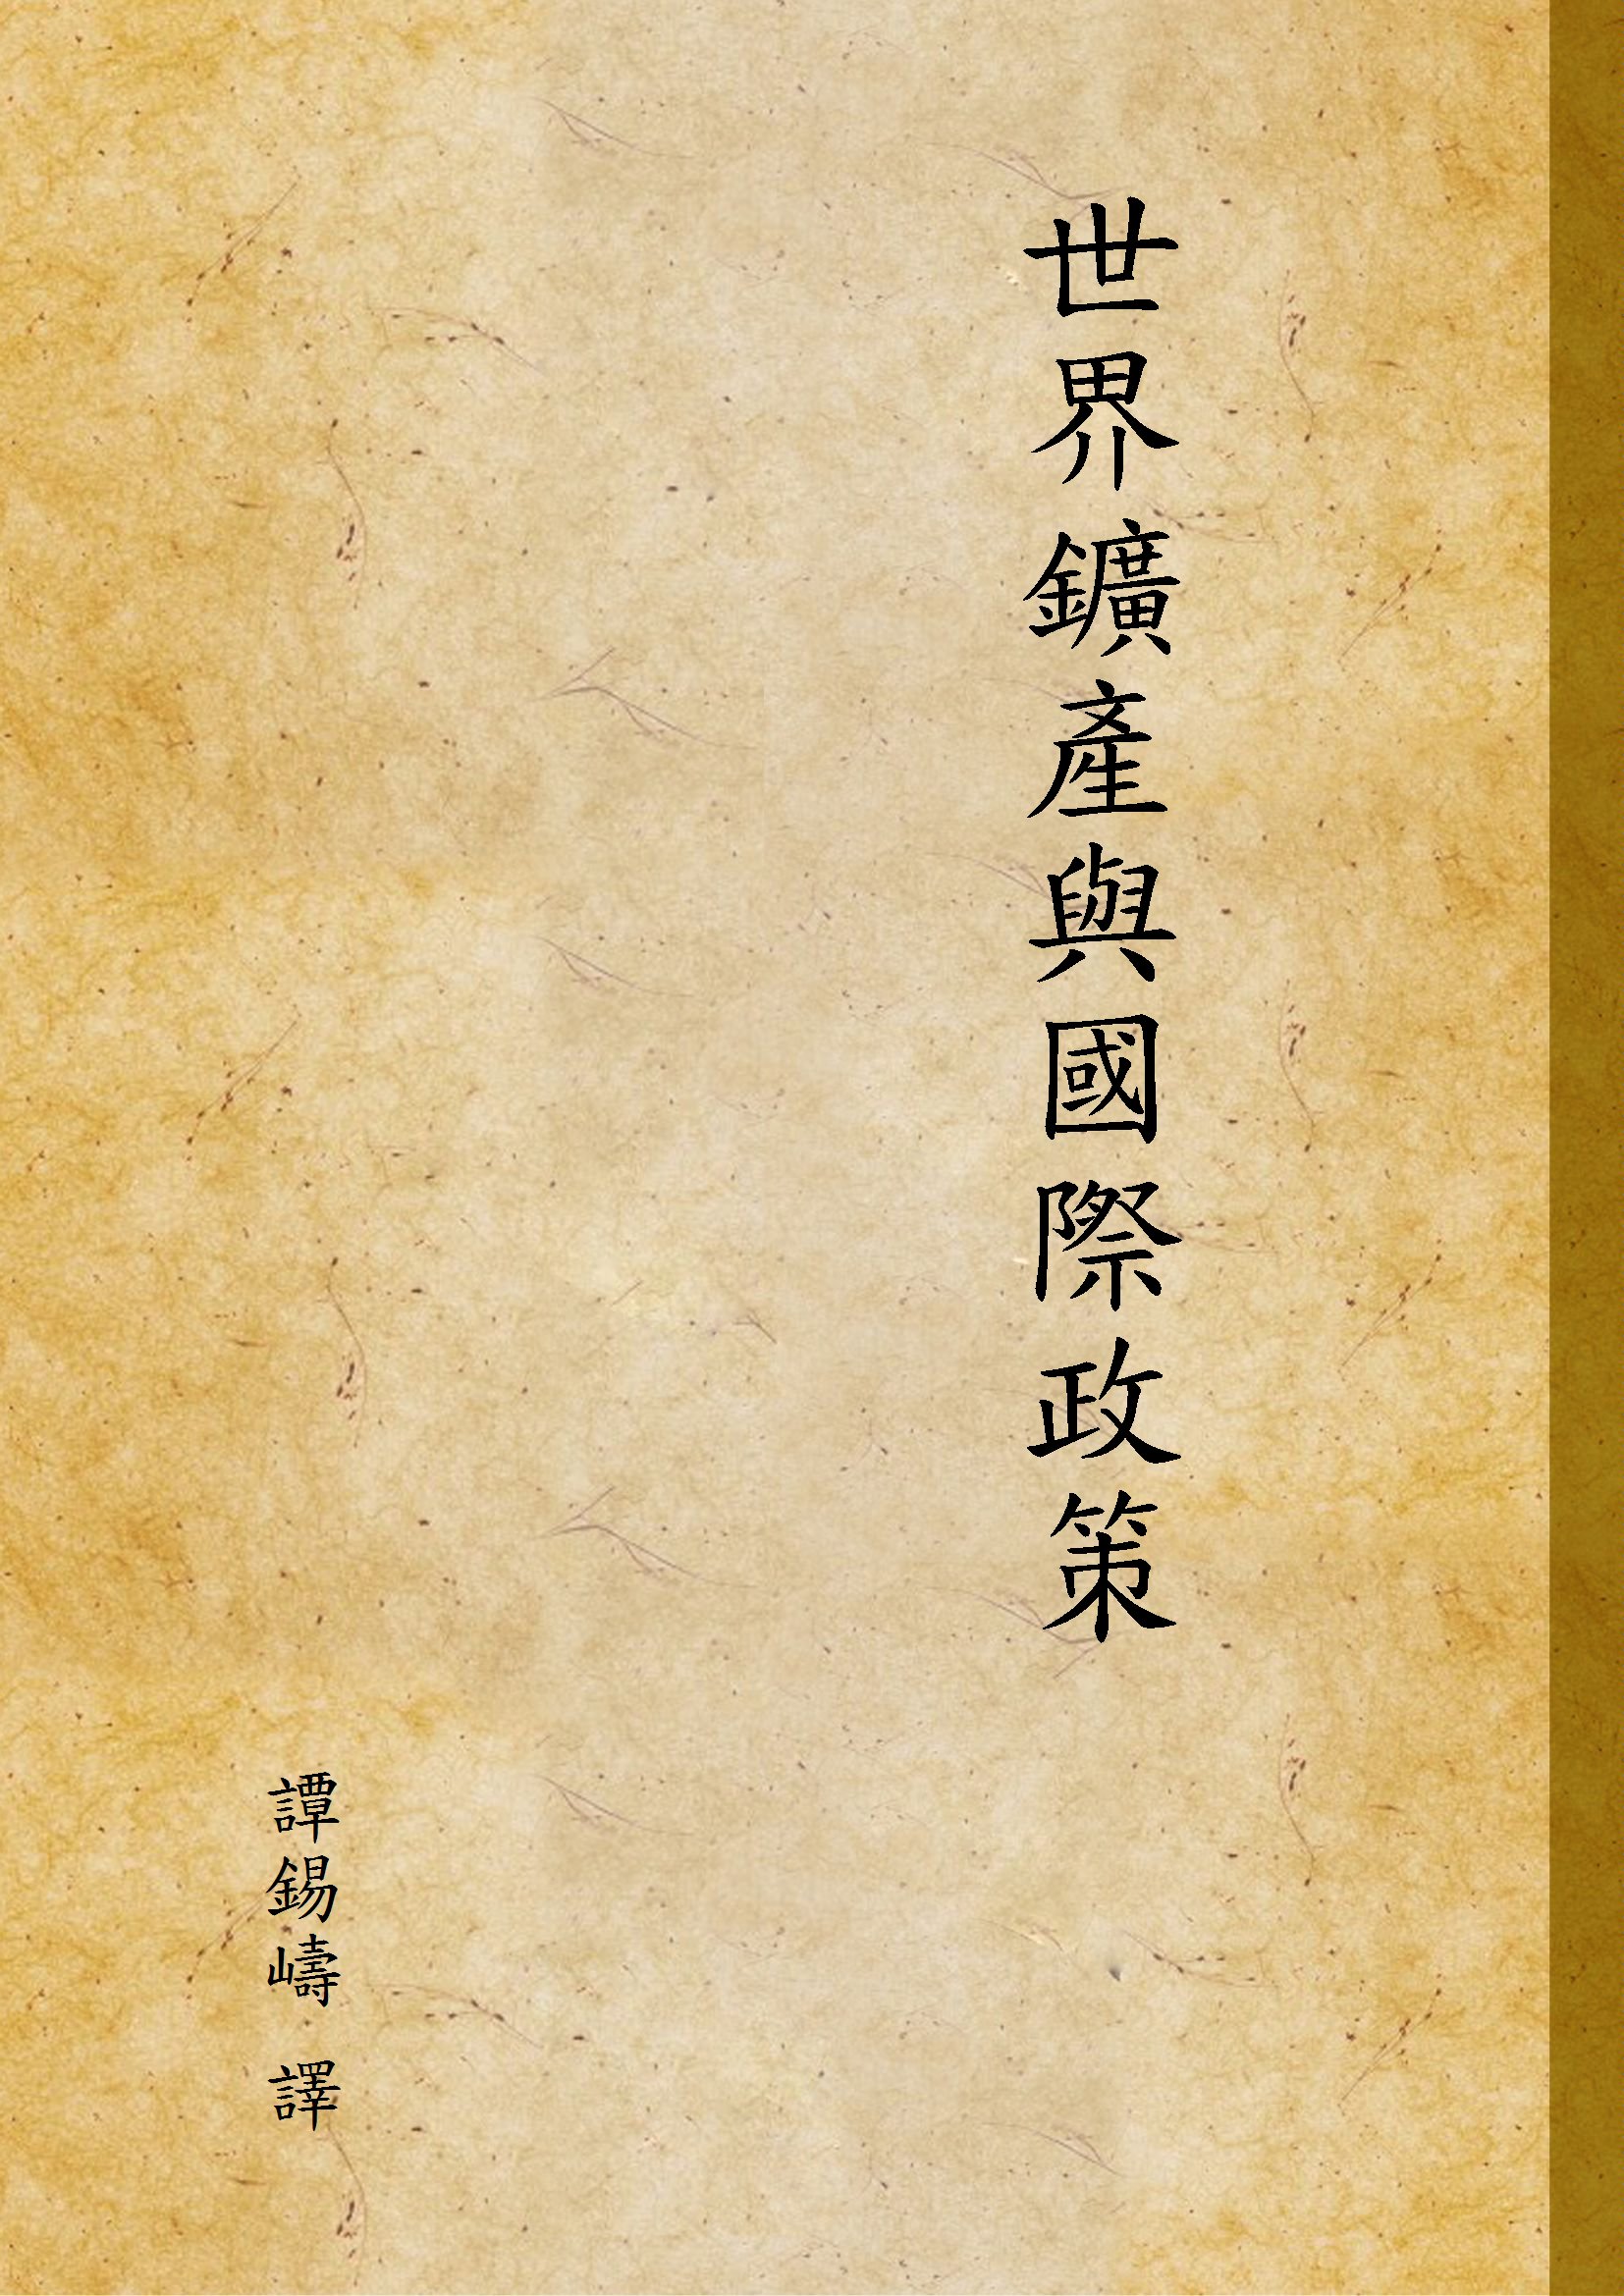 世界鑛產與國際政策
譚錫嶹 譯